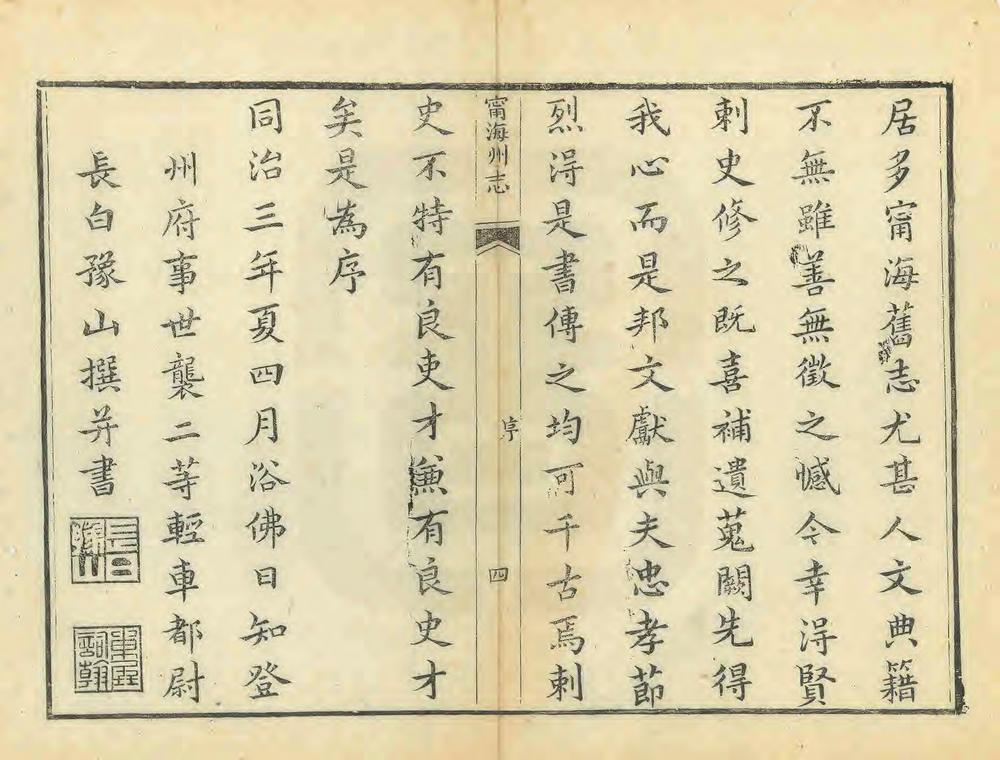 居多甯海舊志尤甚人文典籍
不無雖善無徵之憾今幸淂賢
刺史修之既喜補遺蒐闕先得
我心而是邦文獻與夫忠孝節
烈淂是書傳之均可千古焉刺
甯海州志
序
四
史不特有良吏才兼有良史才
矣是為序
同治三年夏四月浴佛日知登
州府事世襲二等輕車都尉
長白豫山撰并書